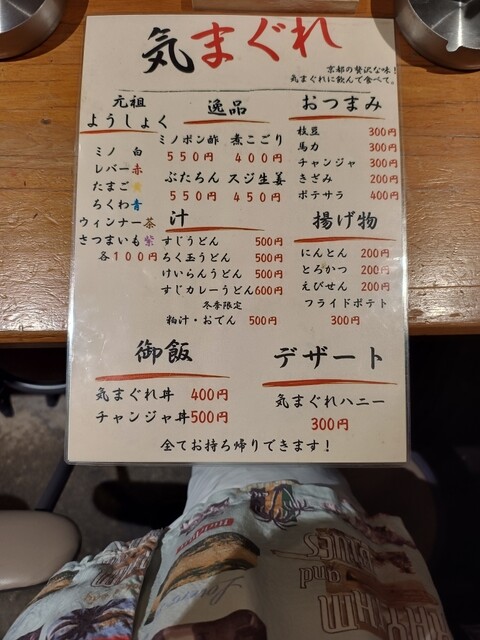 気まぐれ
京都の贅沢な味！
気まぐれに飲んで食べて。
元祖
ようしょく
ミノ 白
レバー赤
たまご黄
ちくわ青
ウィンナー茶
さつまいも紫
各100円
逸品
ミノポン酢 煮こごり
550円 400円
ぶたろん スジ生姜
550円 450円
おつまみ
枝豆 300円
馬力 300円
チャンジャ 300円
きざみ 200円
ポテサラ 400円
汁
すじうどん 500円
ろく玉うどん 500円
けいらんうどん 500円
すじカレーうどん600円
冬季限定
粕汁・おでん 500円
揚げ物
にんとん 200円
とろかつ 200円
えびせん 200円
フライドポテト
300円
御飯
気まぐれ丼 400円
チャンジャ丼500円
デザート
気まぐれハニー
300円
全てお持ち帰りできます！